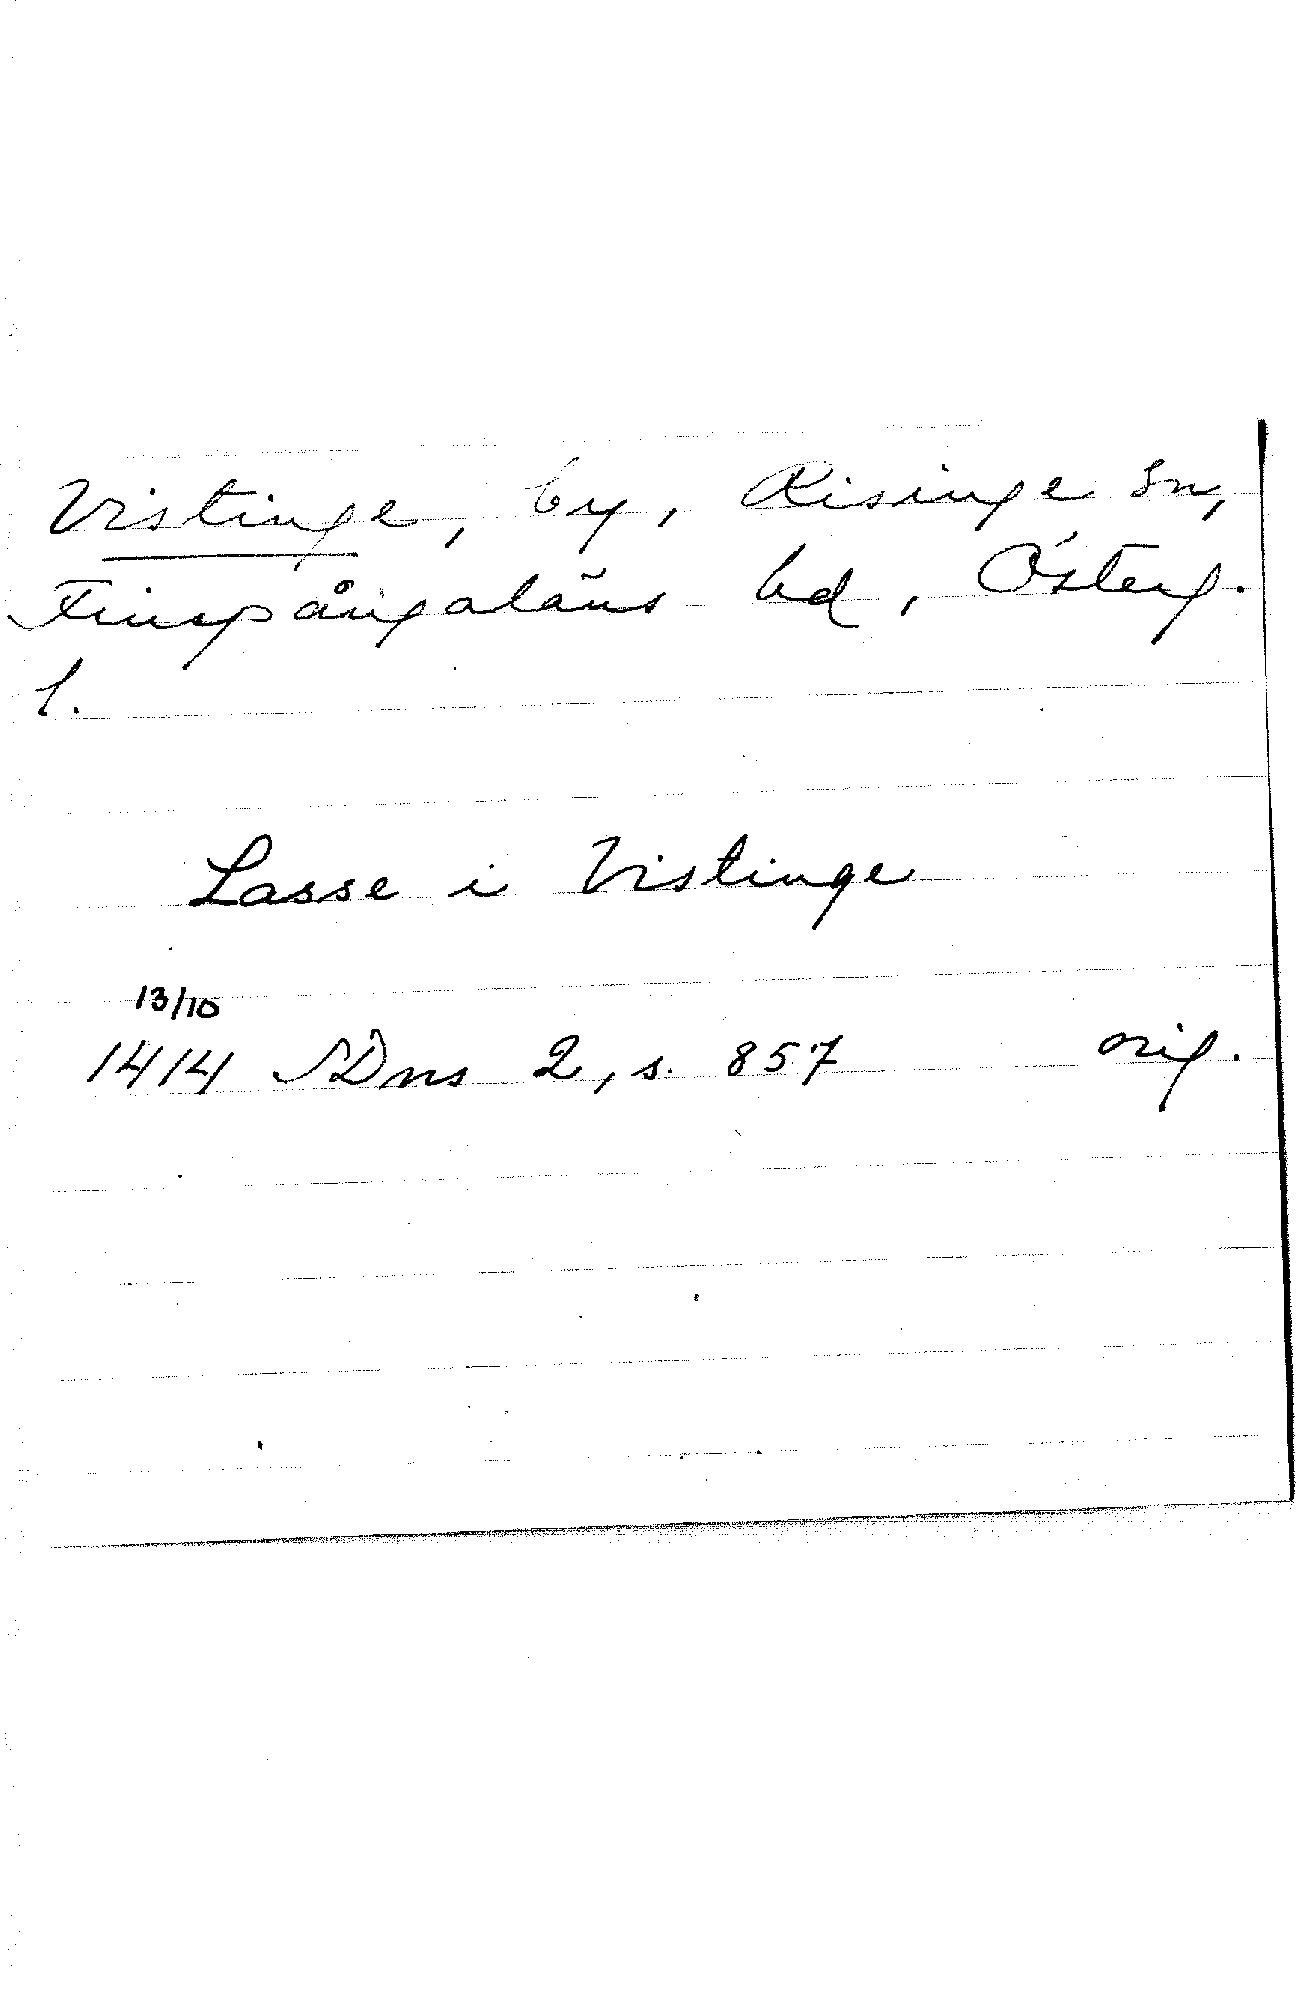 Vistinge, by, Risinge sn,
Finspångaläns hd, Österg.
l.
Lasse i Vistinge
13/10
1414 SDns 2, s. 857 orig.